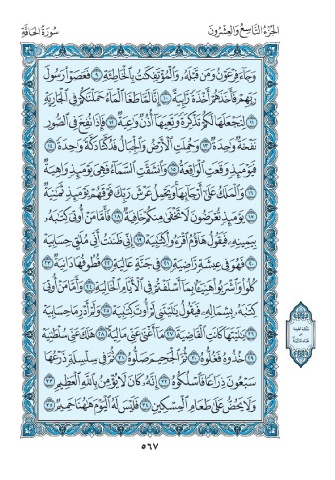 الجزء التاسع والعشرون سورة الحاقة
وَجَآءَ فِرْعَوْنُ وَمَن قَبْلَهُۥ وَٱلْمُؤْتَفِكَٰتُ بِٱلْخَاطِئَةِ ٩ فَعَصَوْا۟ رَسُولَ
رَبِّهِمْ فَأَخَذَهُمْ أَخْذَةً رَّابِيَةً ١٠ إِنَّا لَمَّا طَغَا ٱلْمَآءُ حَمَلْنَٰكُمْ فِى ٱلْجَارِيَةِ
١١ لِنَجْعَلَهَا لَكُمْ تَذْكِرَةً وَتَعِيَهَآ أُذُنٌ وَٰعِيَةٌ ١٢ فَإِذَا نُفِخَ فِى ٱلصُّورِ
نَفْخَةٌ وَٰحِدَةٌ ١٣ وَحُمِلَتِ ٱلْأَرْضُ وَٱلْجِبَالُ فَدُكَّتَا دَكَّةً وَٰحِدَةً ١٤
فَيَوْمَئِذٍ وَقَعَتِ ٱلْوَاقِعَةُ ١٥ وَٱنشَقَّتِ ٱلسَّمَآءُ فَهِىَ يَوْمَئِذٍ وَاهِيَةٌ
١٦ وَٱلْمَلَكُ عَلَىٰٓ أَرْجَآئِهَا وَيَحْمِلُ عَرْشَ رَبِّكَ فَوْقَهُمْ يَوْمَئِذٍ ثَمَٰنِيَةٌ
١٧ يَوْمَئِذٍ تُعْرَضُونَ لَا تَخْفَىٰ مِنكُمْ خَافِيَةٌ ١٨ فَأَمَّا مَنْ أُوتِىَ كِتَٰبَهُۥ
بِيَمِينِهِۦ فَيَقُولُ هَآؤُمُ ٱقْرَءُوا۟ كِتَٰبِيَهْ ١٩ إِنِّى ظَنَنتُ أَنِّى مُلَٰقٍ حِسَابِيَهْ
٢٠ فَهُوَ فِى عِيشَةٍ رَّاضِيَةٍ ٢١ فِى جَنَّةٍ عَالِيَةٍ ٢٢ قُطُوفُهَا دَانِيَةٌ ٢٣
كُلُوا۟ وَٱشْرَبُوا۟ هَنِيٓـًٔۢا بِمَآ أَسْلَفْتُمْ فِى ٱلْأَيَّامِ ٱلْخَالِيَةِ ٢٤ وَأَمَّا مَنْ أُوتِىَ
كِتَٰبَهُۥ بِشِمَالِهِۦ فَيَقُولُ يَٰلَيْتَنِى لَمْ أُوتَ كِتَٰبِيَهْ ٢٥ وَلَمْ أَدْرِ مَا حِسَابِيَهْ
٢٦ يَٰلَيْتَهَا كَانَتِ ٱلْقَاضِيَةَ ٢٧ مَآ أَغْنَىٰ عَنِّى مَالِيَهْ ٢٨ هَلَكَ عَنِّى سُلْطَٰنِيَهْ
٢٩ خُذُوهُ فَغُلُّوهُ ٣٠ ثُمَّ ٱلْجَحِيمَ صَلُّوهُ ٣١ ثُمَّ فِى سِلْسِلَةٍ ذَرْعُهَا
سَبْعُونَ ذِرَاعًا فَٱسْلُكُوهُ ٣٢ إِنَّهُۥ كَانَ لَا يُؤْمِنُ بِٱللَّهِ ٱلْعَظِيمِ ٣٣
وَلَا يَحُضُّ عَلَىٰ طَعَامِ ٱلْمِسْكِينِ ٣٤ فَلَيْسَ لَهُ ٱلْيَوْمَ هَٰهُنَا حَمِيمٌ ٣٥
٥٦٧